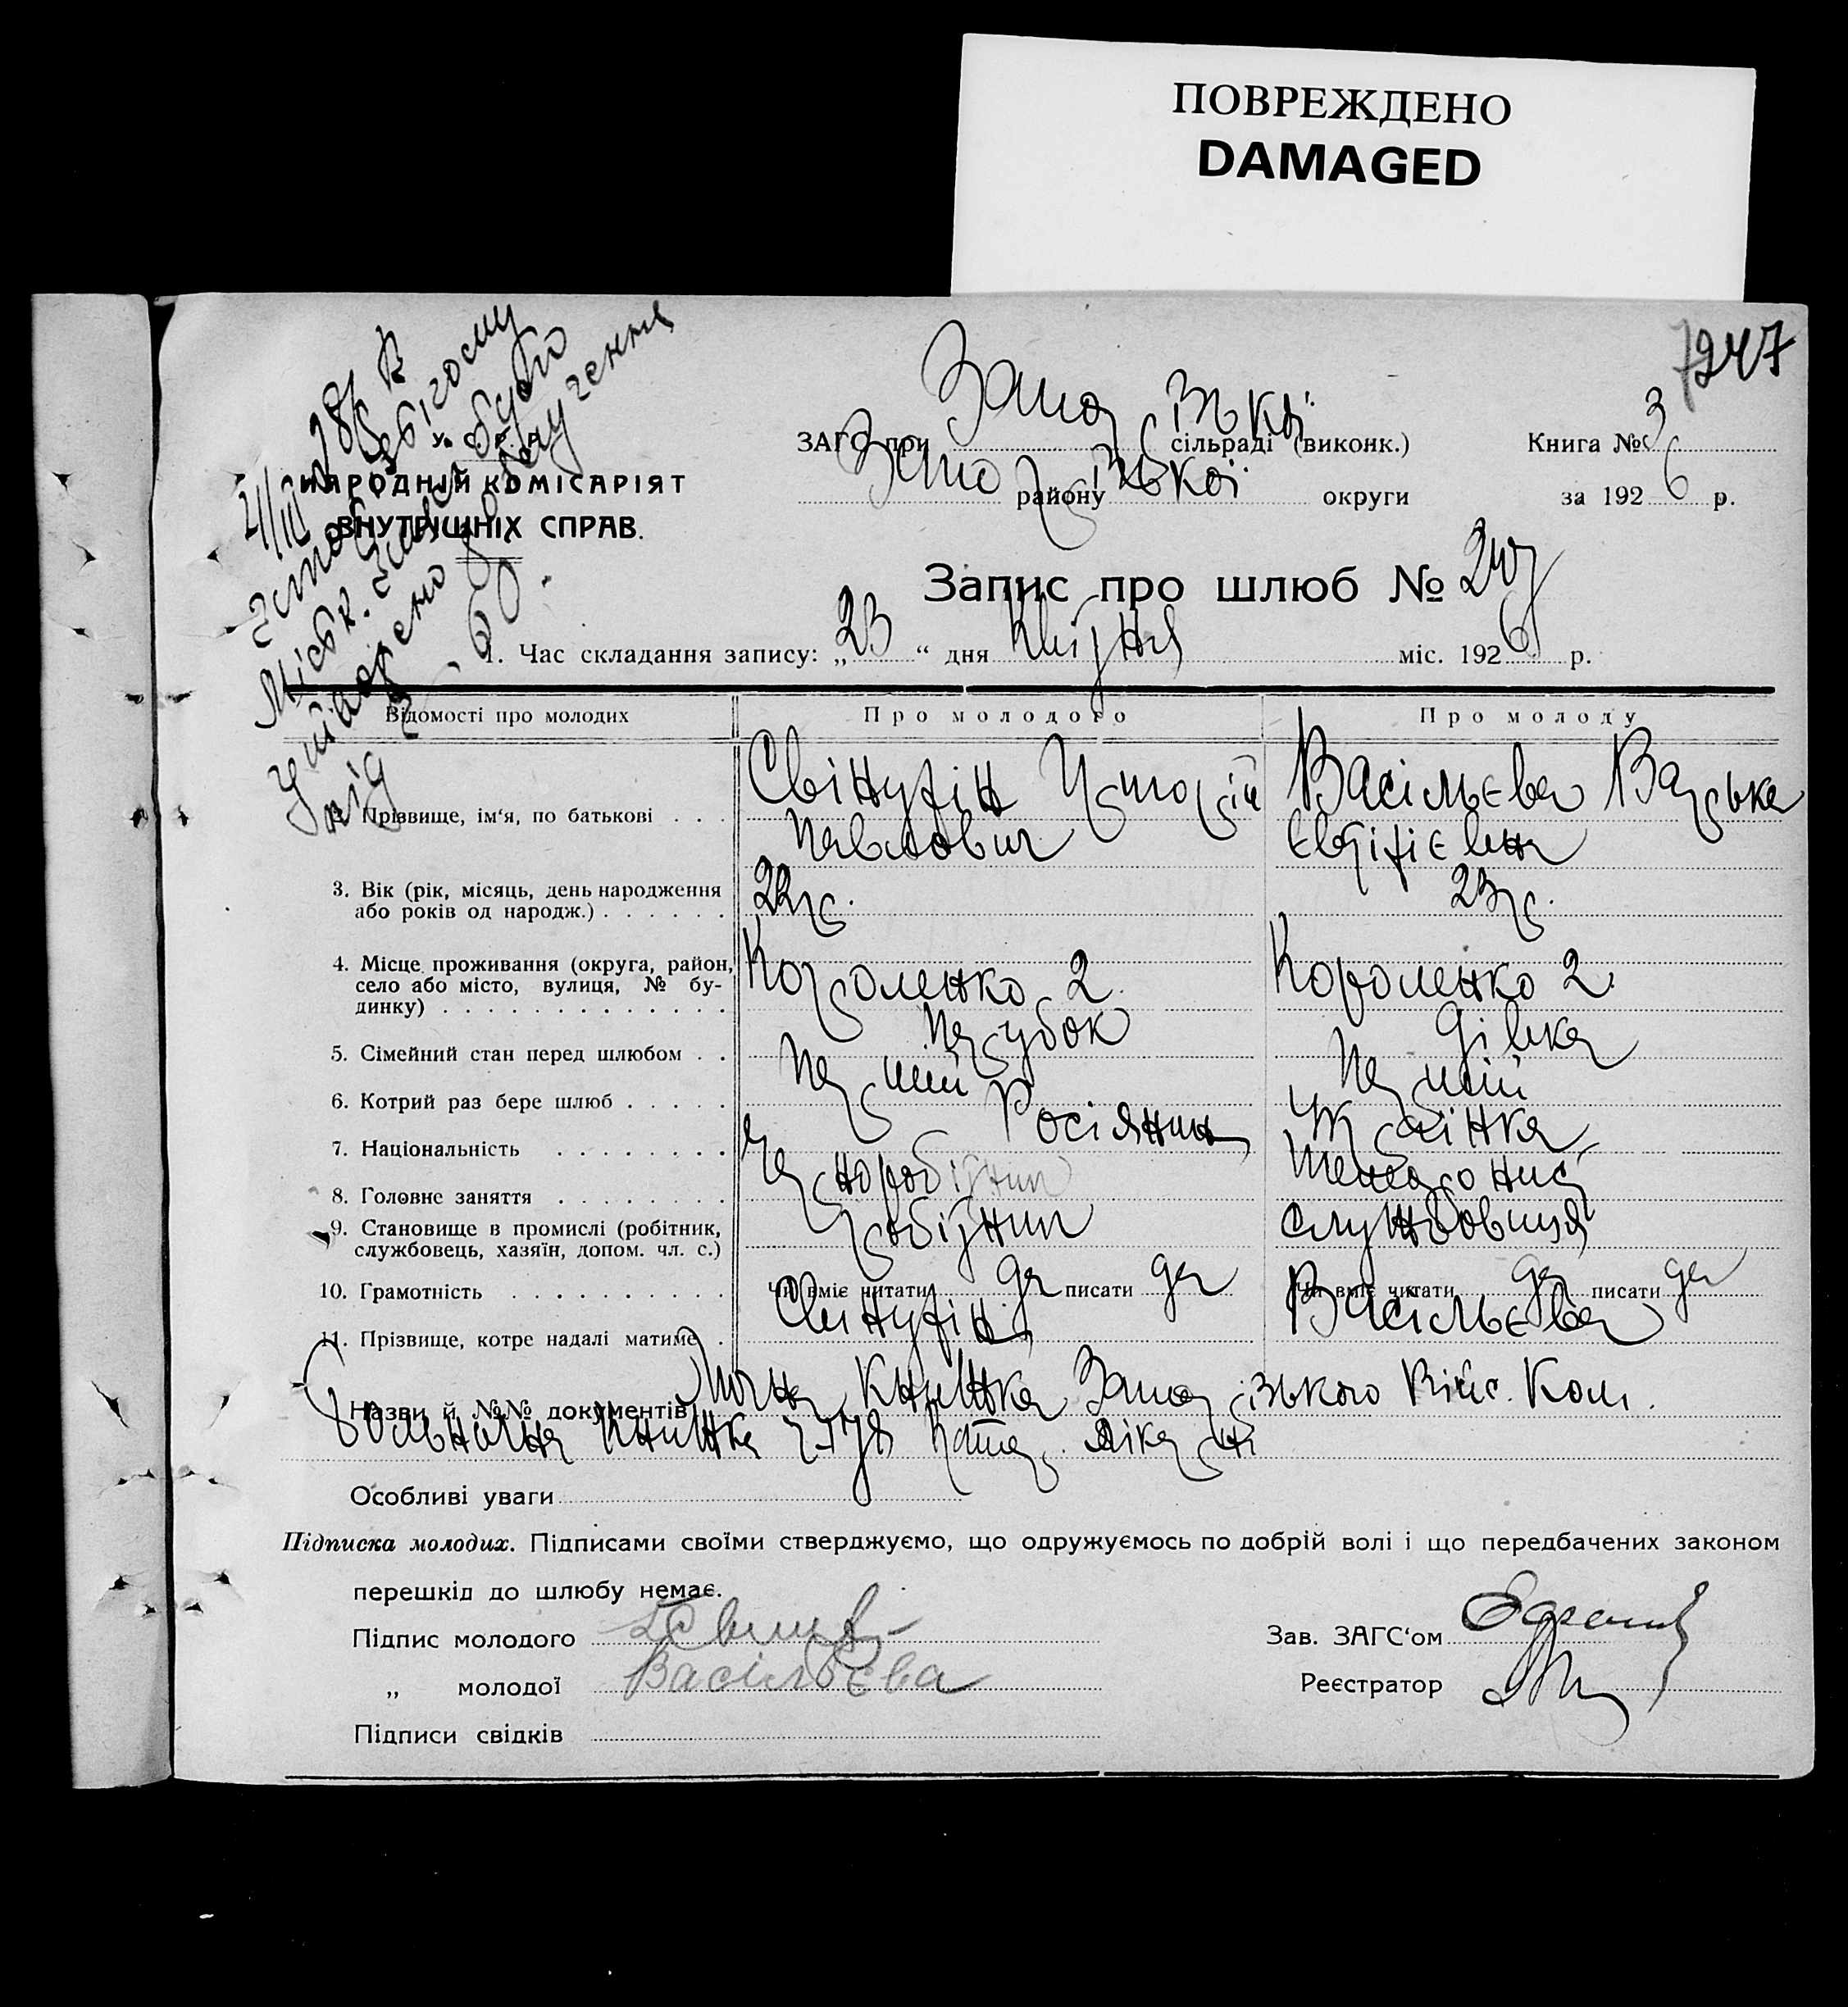 ПОВРЕЖДЕНО
DAMAGED
247
У. С. Р. Р.
НАРОДНІЙ КОМІСАРІЯТ
ВНУТРІШНІХ СПРАВ.
ЗАГС при Запорізької сільраді (виконк.) Книга № 3
Запорізької району округи за 1926 р.
Запис про шлюб № 247
1. Час складання запису: „23“ дня Квітня міс. 1926 р.
Відомості про молодих Про молодого Про молоду
2. Прізвище, ім‘я, по батькові . . . Свінухін Васільєва Варька
Павлович
3. Вік (рік, місяць, день народження
або років од народж.) . . . . . . 22 р. 23 р.
4. Місце проживання (округа, район,
село або місто, вулиця, № бу-
динку) . . . . . . . . . . . . . Короленко 2. Короленко 2.
5. Сімейний стан перед шлюбом . . Парубок Дівка
6. Котрий раз бере шлюб . . . . . Перший Перший
7. Національність . . . . . . . . Росіянин Українка
8. Головне заняття . . . . . . . . Чорноробітник
9. Становище в промислі (робітник,
службовець, хазяїн, допом. чл. с.) робітник службовиця
10. Грамотність . . . . . . . . . . Чи вміє читати да писати да Чи вміє читати да писати да
11. Прізвище, котре надалі матиме . Свинухін Васільєва
Назви й №№ документів книжка Запорізького Війс. Ком.
больнична книжка
Особливі уваги
Підписка молодих. Підписами своїми стверджуємо, що одружуємось по добрій волі і що передбачених законом
перешкід до шлюбу немає.
Підпис молодого
„ молодої Васільєва
Підписи свідків
Зав. ЗАГС‘ом
Реєстратор